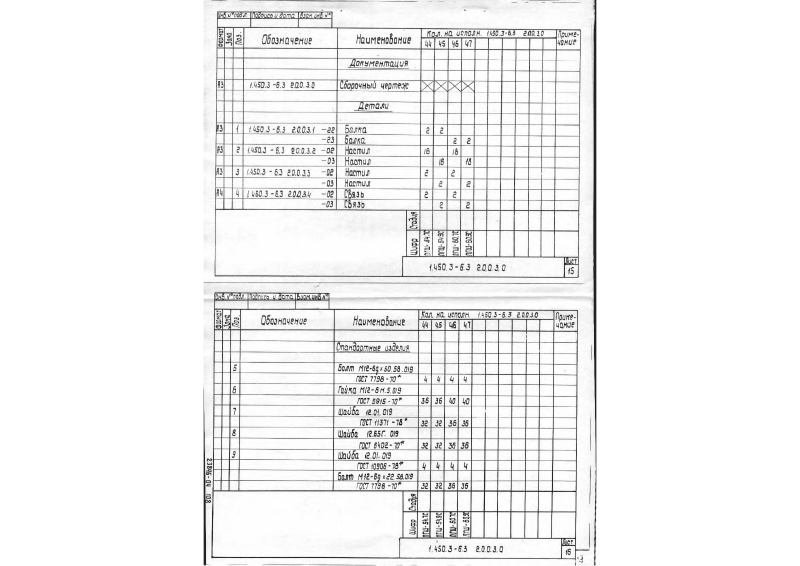 Инв.№ подл. Подпись и дата Взам.инв.№
Формат Зона Поз. Обозначение Наименование Кол. на исполн. 1.450.3-6.3 2.0.0.3.0 Приме-чание
44 45 46 47
Документация
А3 1.450.3-6.3 2.0.0.3.0 Сборочный чертеж
Детали
А3 1 1.450.3-6.3 2.0.0.3.1 -22 Балка 2 2
-23 Балка 2 2
А3 2 1.450.3-6.3 2.0.0.3.2 -02 Настил 16 16
-03 Настил 16 18
А3 3 1.450.3-6.3 2.0.0.3.3 -02 Настил 2 2
-03 Настил 2 2
А4 4 1.450.3-6.3 2.0.0.3.4 -02 Связь 2 2
-03 Связь 2 2
Шифр Стадия
1.450.3-6.3 2.0.0.3.0 Лист
15
Инв.№ подл. Подпись и дата Взам.инв.№
Формат Зона Поз. Обозначение Наименование Кол. на исполн. 1.450.3-6.3 2.0.0.3.0 Приме-чание
44 45 46 47
Стандартные изделия
5 Болт М12-8g×50.58.019
ГОСТ 7798-70* 4 4 4 4
6 Гайка М12-8Н.5.019
ГОСТ 5915-70* 36 36 40 40
7 Шайба 12.01.019
ГОСТ 11371-78* 32 32 36 36
8 Шайба 12.65Г.019
ГОСТ 6402-70* 32 32 36 36
9 Шайба 12.01.019
ГОСТ 10906-78* 4 4 4 4
Болт М12-8g×22.58.019
ГОСТ 7798-70* 32 32 36 36
Шифр Стадия
1.450.3-6.3 2.0.0.3.0 Лист
16